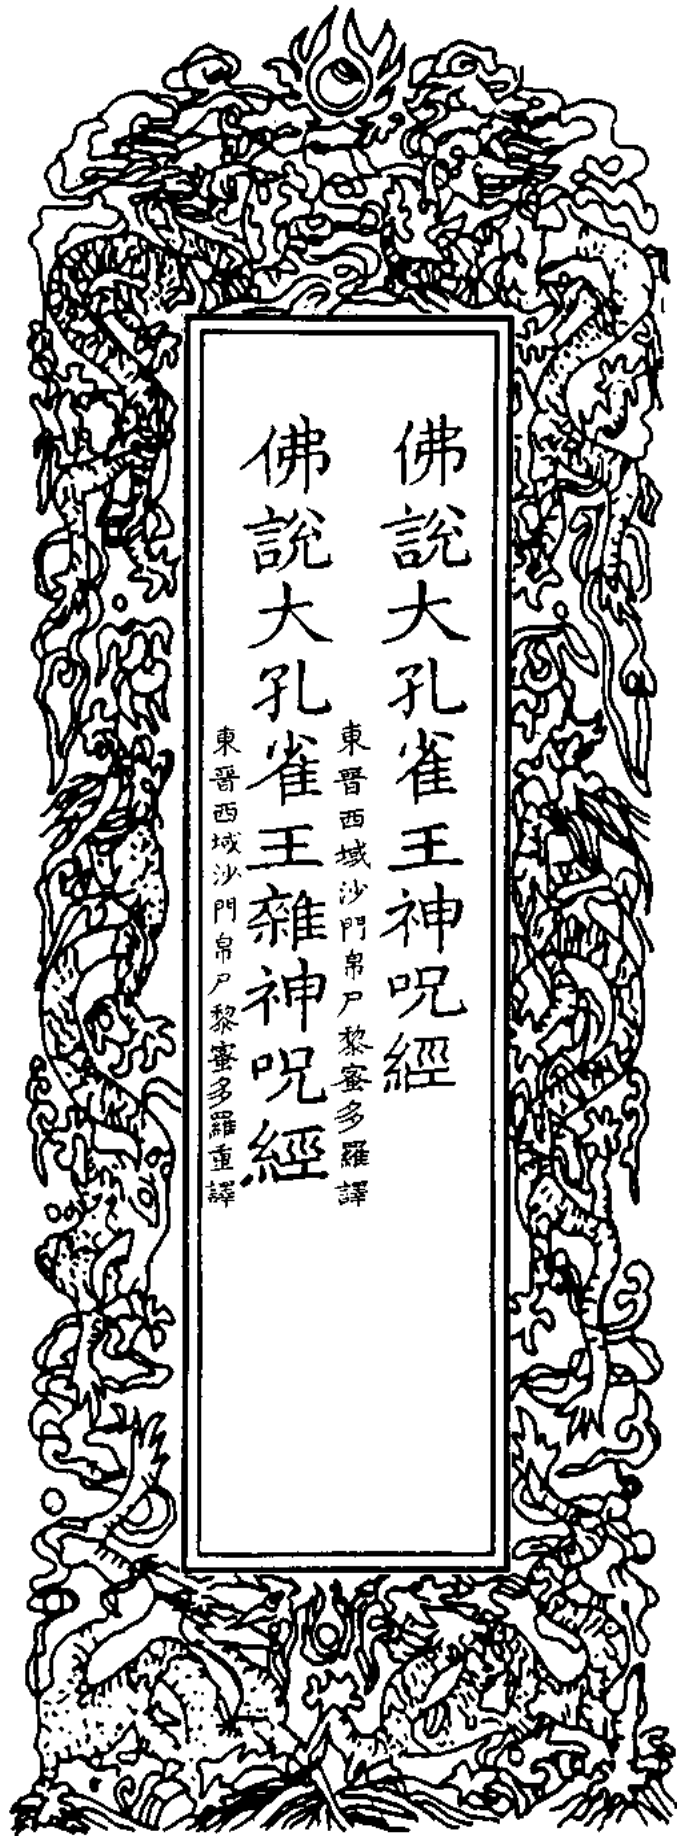 佛說大孔雀王神呪經
東晉西域沙門帛尸黎蜜多羅譯
佛說大孔雀王雜神呪經
東晉西域沙門帛尸黎蜜多羅重譯